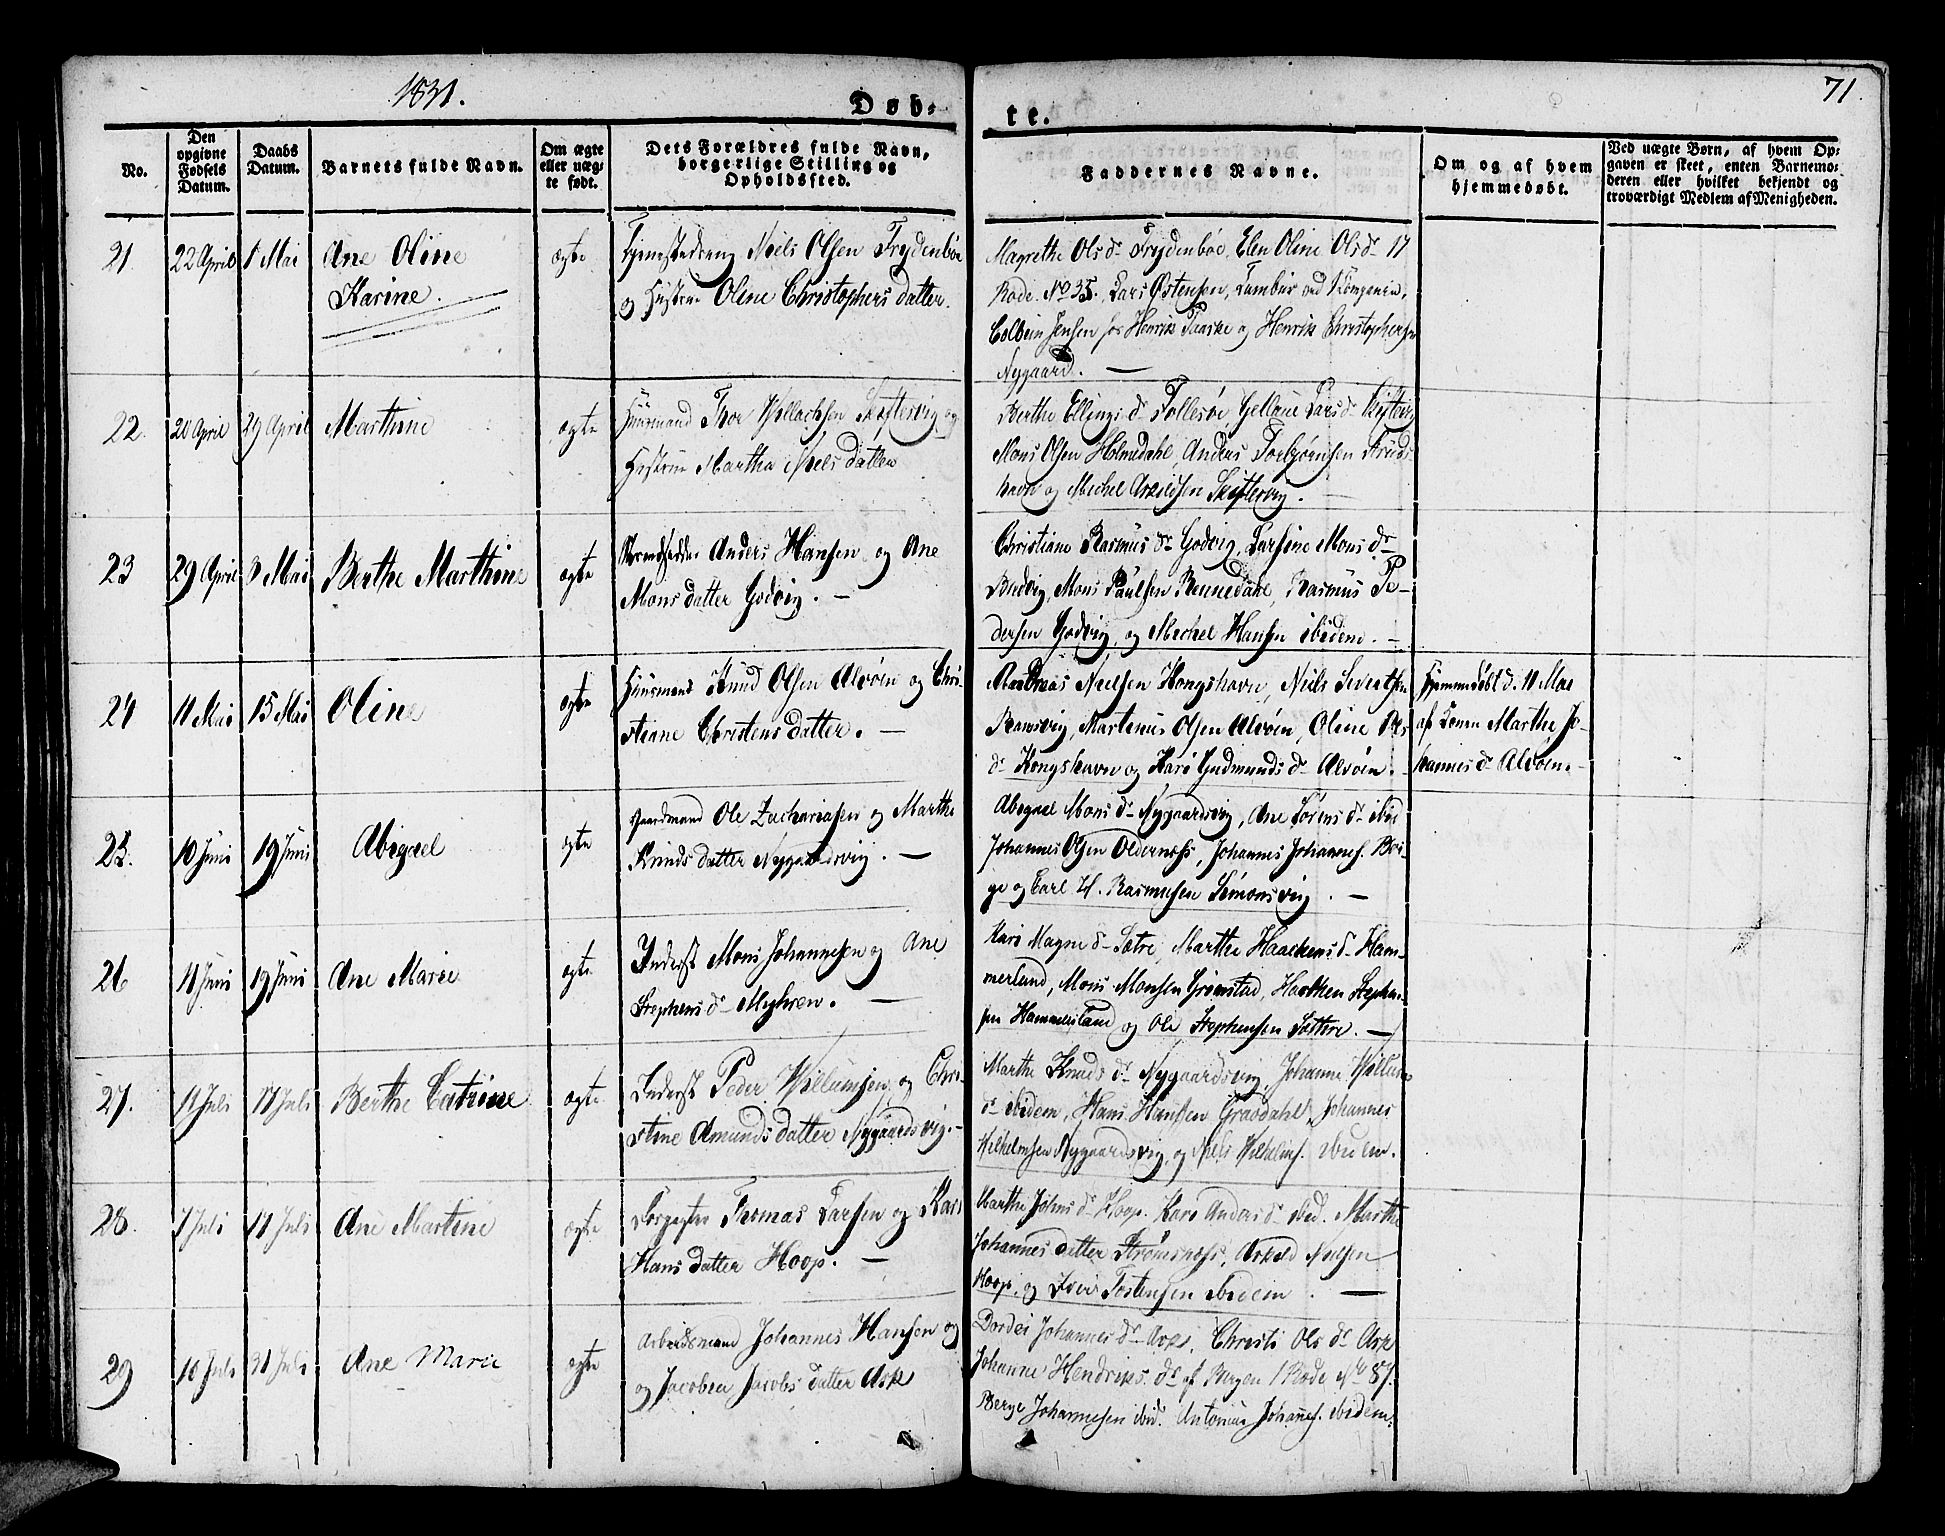 1831.
Døb-
te.
71
No.
Den opgivne Fødsels Datum.
Daabs Datum.
Barnets fulde Navn.
Om ægte eller uægte født.
Dets Forældres fulde Navn, borgerlige Stilling og Opholdssted.
Faddernes Navne.
Om og af hvem hjemmedøbt.
Ved uægte Børn, af hvem Opgaven er skeet, enten Barnemoderen eller hvilket bekjendt og troværdigt Medlem af Menigheden.
21. 22 April 1 Mai Ane Oline ægte Niels Olsen Frydenbøe
Karine. og Hustrue Oline Christophers datter.
Magrethe Ols dr Frydenbøe, Elen Oline Ols dr 17
Rode No 35. Lars Østensen, Tambur ved Kompanin,
Colbein Jensen for Henrik Faaske og Henrik Christophersen
Nygaard. —
22. 20 April 29 April Marthine ægte Huusmand Thor Skiftesvig og
Hustrue Martha Niels datter
Berthe Ellings dr Follesøe, Lars dr
Mons Olsen Holmedahl, Andreas Torbjørnsen
havn og Michel Skiftesvig.
23 29 April 3 Mai Berthe Marthine ægte Anders Hansen og Ane
Mons datter Godvig. —
Christiane Rasmus dr Godvig, Larsine Mons dr
Mons Paulsen Rennedahl, Rasmus Pe-
dersen Godvig, og Michel Hansen ibidem. —
24 11 Mai 15 Mai Oline ægte Huusmand Knud Olsen Alvøen og Chri-
stiane Christens datter. —
Andreas Nielsen Kongshavn, Niels Sivertsen
Ramsvig, Martinus Olsen Alvøen, Oline
dr Kongshavn og Kari Gudmunds dr Alvøen.
Hjemmedøbt d. 11 Mai
af Konen Marthe Jo-
hannes dr Alvøen. -
25. 10 Juni 19 Juni Abigael ægte Gaardmand Ole Zachariasen og Marthe
Knuds datter Nygaardsvig. —
Abegael Mons dr Nygaardsvig, Ane Sørens dr ibid
Johannes Olsen Oldernæss, Johannes Johannes.
ge og Carl H. Rasmussen Simonsvig. —
26 11 Juni 19 Juni Ane Marie ægte Inderst Mons Johannesen og Ane
Stephens dr Myhren. —
Kari Magne dr Sætre, Marthe Haackens dr Ham-
merland, Mons Monsen Grimstad, Haacken Stephen-
sen Hammersland og Ole Stephensen Sættre. —
27. 11 Juli 17 Juli Berthe Catrine ægte Inderst Peder Willumsen og Chri-
stine Amunds datter Nygaardsvig. -
Marthe Knuds dr Nygaardsvig, Johanne Willums
dr ibidem, Hans Hansen Gravdahl, Johannes
Wilhelmsen Nygaardsvig, og Niels Wilhelms. ibidem.
28. 7 Juli 17 Juli Ane Martine ægte Forpagter Thomas Larsen og Kari
Hans datter Hoop. —
Marthe Johns dr Hoop. Kari Anders dr ibid. Marthe
Johannes datter Strømsnæss, Askild Nielsen
Hoop, og Iver Tostensen ibidem. —
29 10 Juli 31 Juli Ane Marie ægte Arbeidsmand Johannes Hansen og
og Jacobea Jacobs datter Ask
Dordei Johannes dr Ask, Christi Ols dr Ask
Johanne Hendriks dr af Bergen 1 Rode No 87.
Berge Johannesen ibid. Antonius Johannes. ibidem.